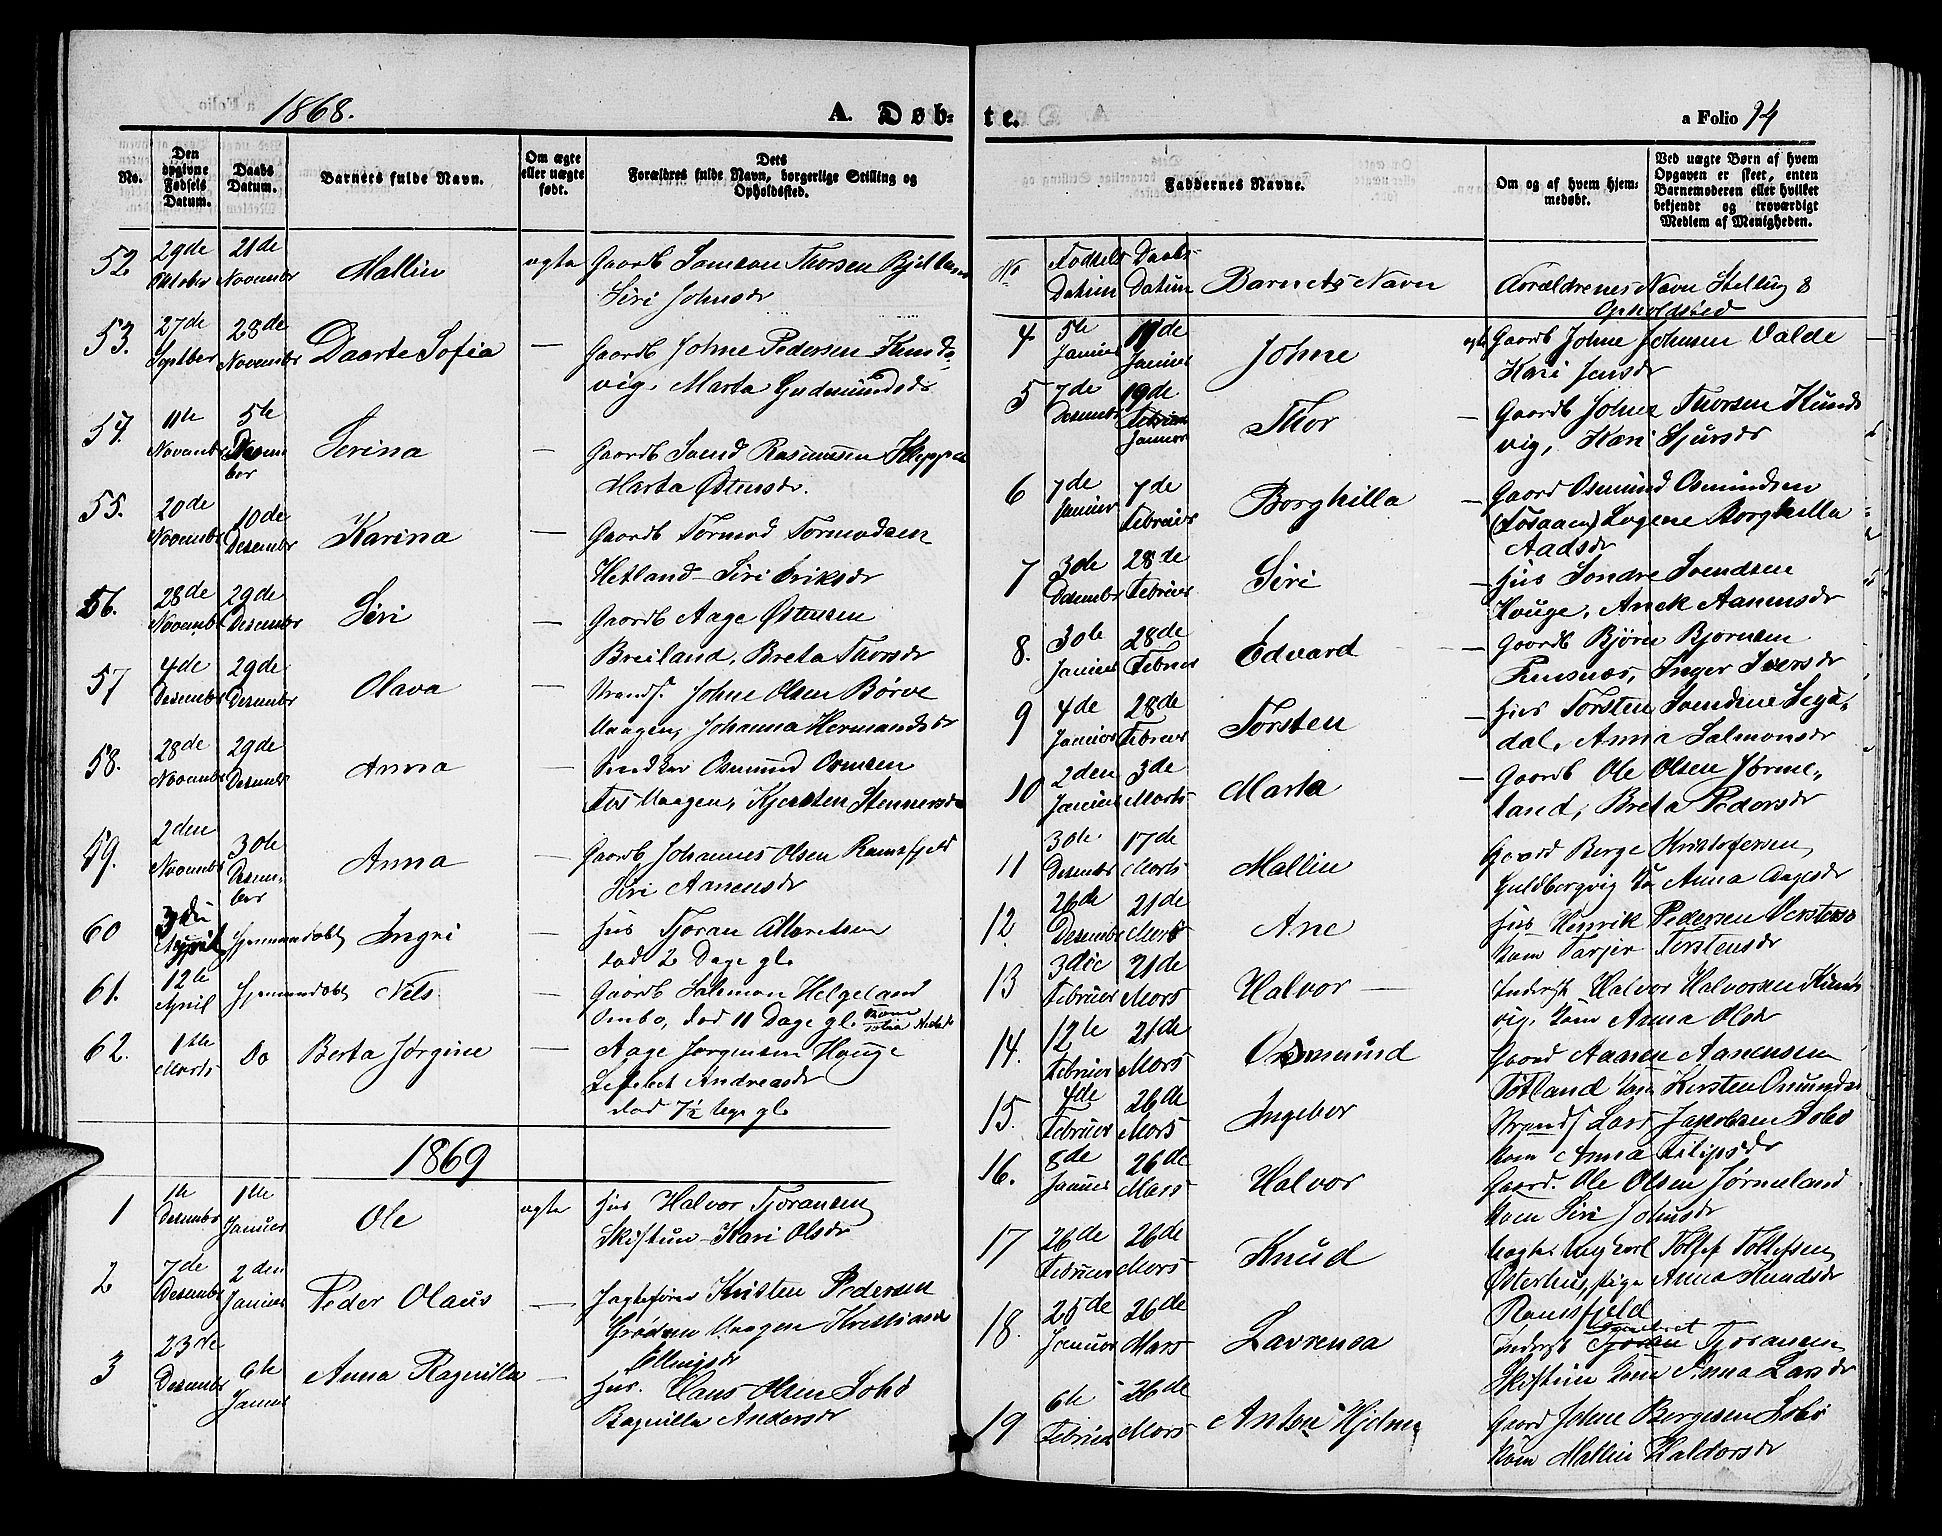 1868.
A. Døb-
te.
a Folio 94
No.
Den opgivne Fødsels Datum.
Daabs Datum.
Barnets fulde Navn.
Om ægte eller uægte født.
Dets Forældres fulde Navn, borgerlige Stilling og Opholdssted.
52. 29de Oktober 21de Novembr Mallin ægta Gaardb Samson Thorsen Bjelland
Siri Johnsdr
53. 27de Septber 28de Novembr Daarte Sofia — Gaardb Johne Pedersen Kunds
vig, Marta Gudmundsdr
54. 11te Novembr 5te Desember Serina — Gaardb Svend Rasmussen Kleppa
Marta Østensdr.
55. 20de Novembr 10de Desembr Karina — Gaardb Tormod Tormodsen
Hetland Siri Eriksdr
56. 28de Novembr 29de Desembr Siri — Gaardb Aage Østensen
Breiland, Breta Thorsdr
57 4de Desembr 29de Desembr Olava — Strands. Johne Olsen Børve
Vaagen, Johanna Hermandsdr
58. 28de Novembr 29de Desembr Anna — Osmund
Vaagen, Kjersten Stennersdr
59. 2den Novembr 30te Desember Anna — Gaardb Johannes Olsen Ramsfjeld
Siri Aanensdr
60 April hjemmedøbt Ingri — hus Tjøran
død 2 Dage gl.
61. 12te April hjemmedøbt Nels — Gaardb Salomon Helgeland
Ombo, død 11 Dage gl.
62. 1ste Marts Do Berta Jørgine — Aage Jørgensen Houge
Lisebet Andreasdr
død 7½ uge gl.
1869
1 1te Desembr 1ste Januar Ole ægta hus Halvor Tjøransen
Skiftun Kari Olsdr
2 7de Desembr 2den Januar Peder Olaus — Jagtefører Kristen Pedersen
Grødem Vaagen Kristiane
Ellingsdr
3 23de Desembr 6te Januar Anna Ragnilla — hus. Hans Olsen Lobø
Ragnilla Andersdr
Faddernes Navne.
Om og af hvem hjemmedøbt.
Ved uægte Børn af hvem Opgaven er skeet, enten Barnemoderen eller hvilket bekjendt og troværdigt Medlem af Menigheden.
No Fødsels Datum Daabs Datum Barnets Navn Forældrenes Navn Stelling &
Opholdsted
4 5te Januar 17de Januar Johne ægte Gaardb Johne Johnsen Valde
Kari Jensdr
5 7de Desembr 19de Januar Thor — Gaardb Johne Thorsen Kunds
vig, Kari Sjursdr
6 7de Januar 7de Februar Borghilla — Gaard Osmund Osmundsen
(Fosaaen) Lugene Borghilla
Aadsdr
7 30te Desembr 28de Februar Siri — hus Sondre Svendsen
Houge, Anek Aanensdr
8. 30te Januar 28de Februar Edvard — Gaardb Bjørn Bjørnsen
Inger Iversdr
9 4de Januar 28de Februar Torsten — hus Torsten Svendsen Sega-
dal, Anna Salmonsdr
10 2den Januar 3de Marts Marta — Gaardb Ole Olsen Jørme-
land, Breta Pedersdr
11 30te Desembr 17de Marts Mallin Gaard Børge Kristofersen
Guldbergvig Kon Anna Aagesdr
12. 26de Desembr 21de Mars Ane hus Henrik Pedersen Versterso
Kon Tarjer Torstensdr
13 3die Februar 21de Mars Halvor — Inderst Halvor Halvorsen Kunds
vig, Kon Anna Olsdr
14. 12te Februar 21de Mars Osmund Gaard Aanen Aanensen
Totland Kon Kirsten Osmundsdr
15. 4de Februar 26de Mars Ingebor Strands Lars Jakobsen Lobø
Kon Anna Filipsdr
16. 8de Januar 26de Mars Halvor Gaard. Ole Olsen Jørmeland
Kon Siri Johnsdr
17 26de Februar 26de Mars Knud Uægte, Ungkarl Tollef Tollefsen
Østerhus, pige Anna Knudsdr
Ramsfjeld
18. 25de Januar 26de Mars Lavrensa Inderst Tjøransen
Skiftun Kon Anna Larsdr
19 6te Februar 26de Mars Anton Hjelm Gaard Johne Børgesen Lobø
Kon Mallin Haldorsdr